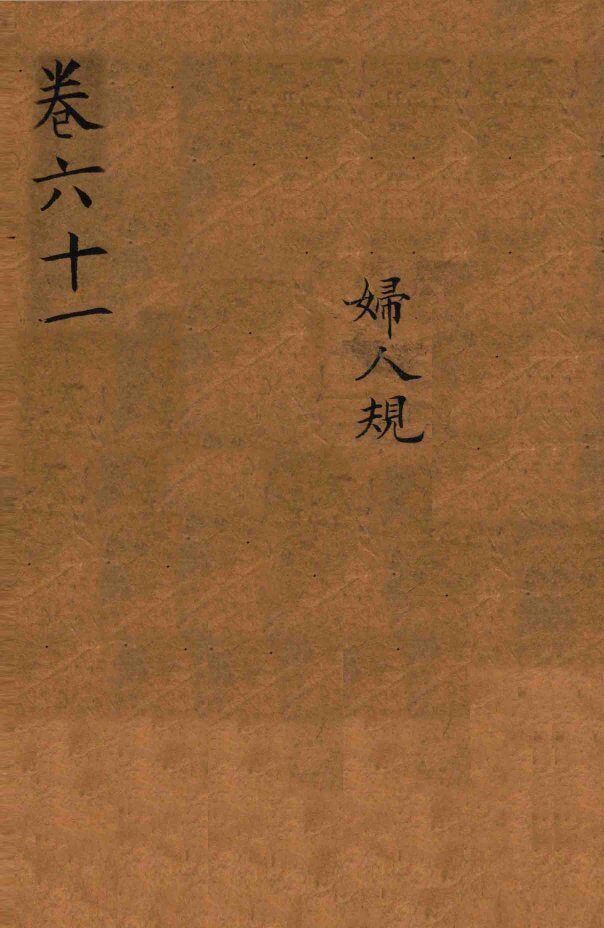 婦人規
卷六十一